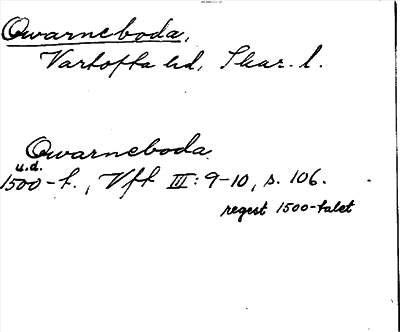 Qwarneboda,
Vartofta hd, Skar. l.
Qwarneboda
u.d.
1500-t., Vft III: 9-10, s. 106.
regest 1500-talet